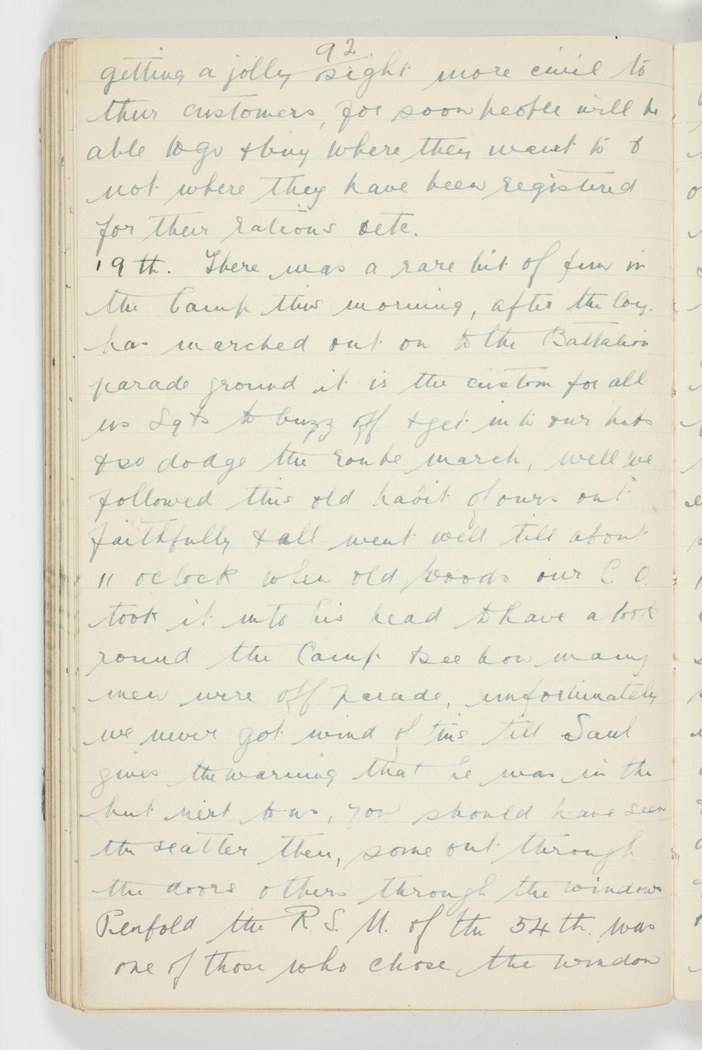 92
getting a jolly sight more civil to
their customers, for soon people will be
able to go & buy where they want to &
not where they have been registered
for their rations etc.
19th. There was a rare bit of fun in
the Camp this morning, after the Coy.
has marched out on to the Battalion
parade ground it is the custom for all
us Sgts to buzz off & get into our huts
& so dodge the route march, well we
followed this old habit of ours out
faithfully & all went well till about
11 oclock when old Woods our C.O.
took it into his head to have a look
round the Camp & see how many
men were off parade, unfortunately
we never got wind of this till Saul
gives the warning that he was in the
hut next to us, you should have seen
the scatter then, some out through
the doors others through the windows
Penfold the R.S.M. of the 54th. was
one of those who chose the window